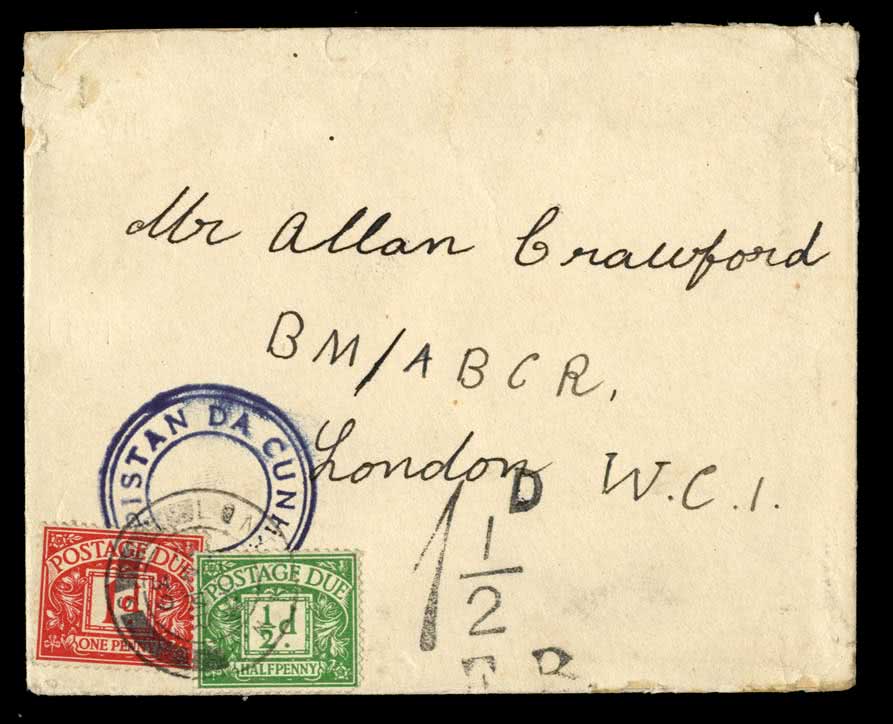 Mr Allan Crawford
BM/ABCR,
London W.C.1.
RISTAN DA CUNHA
1 1/2 D
POSTAGE DUE
1d
ONE PENNY
POSTAGE DUE
1/2d
HALFPENNY